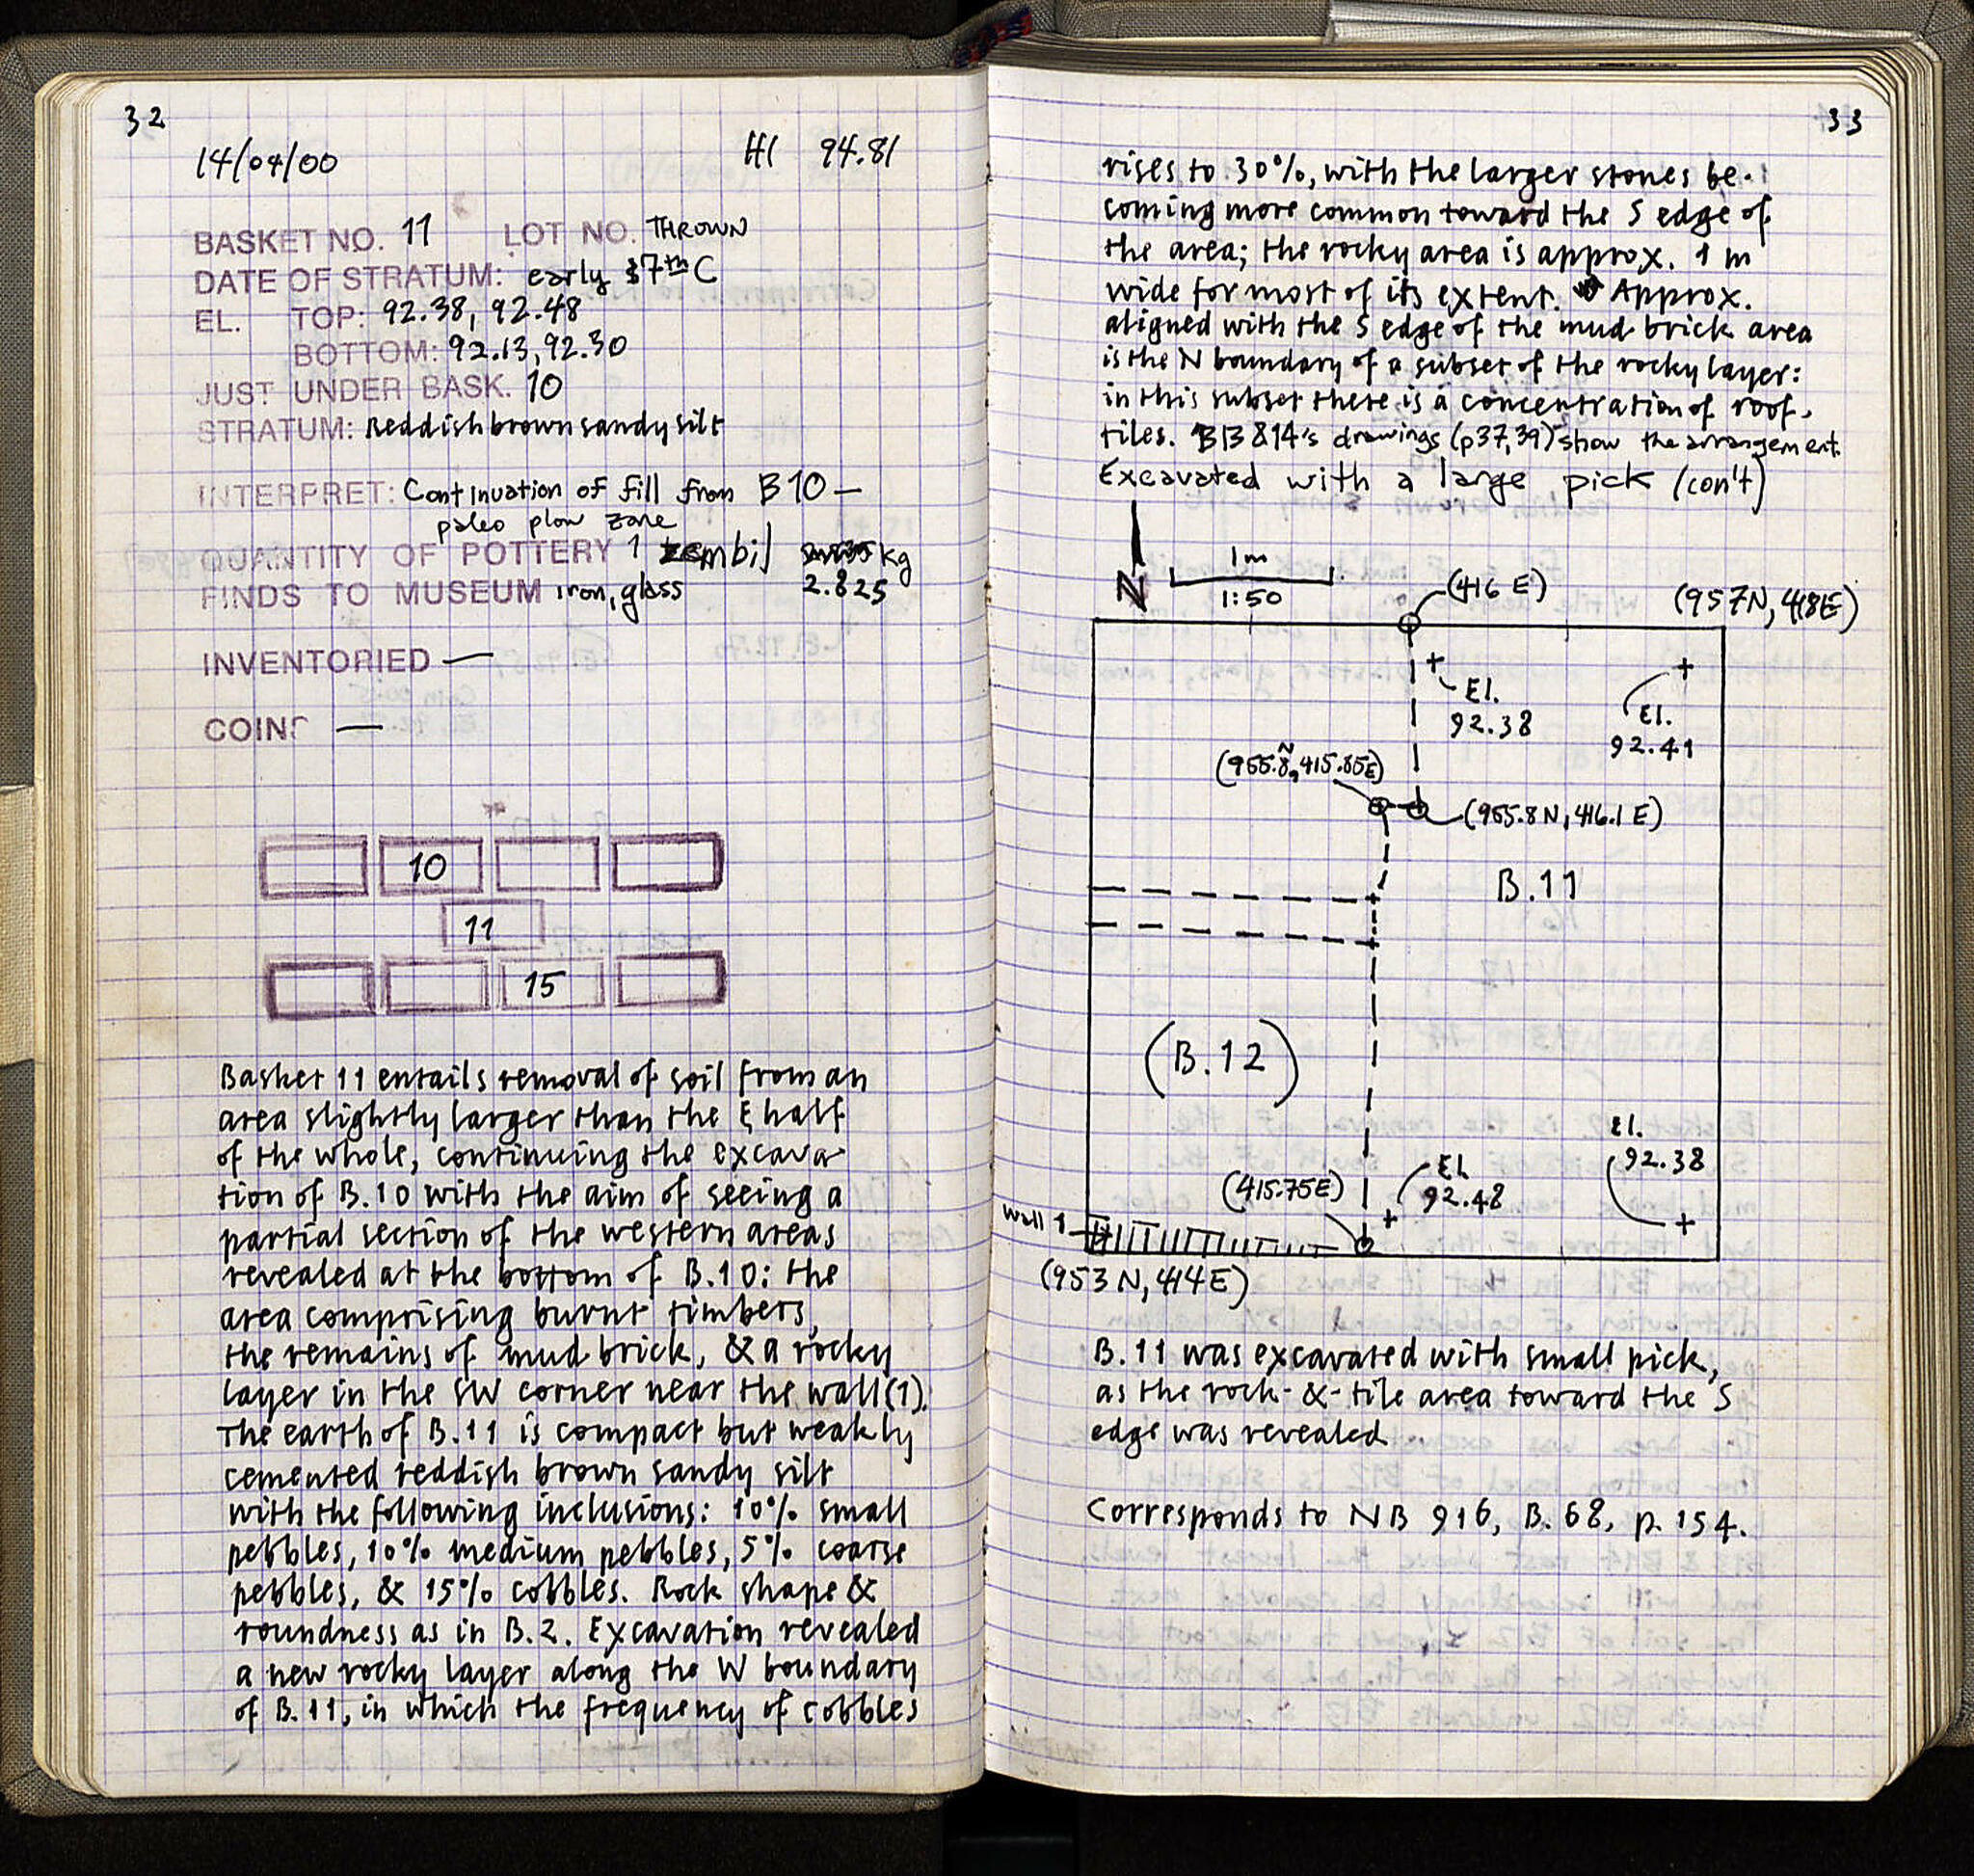 32
14/04/00 HI 94.81
BASKET NO. 11 LOT NO. THROWN
DATE OF STRATUM: early 7th C
EL. TOP: 92.38, 92.48
BOTTOM: 92.13, 92.30
JUST UNDER BASK. 10
STRATUM: Reddish brown sandy silt
INTERPRET: Continuation of fill from B10 —
paleo plow zone
QUANTITY OF POTTERY 1 zembil kg
FINDS TO MUSEUM iron, glass 2.825
INVENTORIED —
COINS —
10
11
15
Basket 11 entails removal of soil from an
area slightly larger than the E half
of the whole, continuing the excava-
tion of B.10 with the aim of seeing a
partial section of the western areas
revealed at the bottom of B.10: the
area comprising burnt timbers,
the remains of mud brick, & a rocky
layer in the SW corner near the wall (1).
The earth of B.11 is compact but weakly
cemented reddish brown sandy silt
with the following inclusions: 10% small
pebbles, 10% medium pebbles, 5% coarse
pebbles, & 15% cobbles. Rock shape &
roundness as in B.2. Excavation revealed
a new rocky layer along the W boundary
of B.11, in which the frequency of cobbles
33
rises to 30%, with the larger stones be-
coming more common toward the S edge of
the area; the rocky area is approx. 1 m
wide for most of its extent. Approx.
aligned with the S edge of the mud brick area
is the N boundary of a subset of the rocky layer:
in this subset there is a concentration of roof-
tiles. B13 & 14's drawings (p37,39) show the arrangement.
Excavated with a large pick (con't)
N
1m
1:50
(416 E)
(957N, 418E)
El.
92.38
El.
92.41
(955.8N, 415.85E)
(955.8N, 416.1E)
B.11
(B.12)
El.
92.38
(415.75E)
El.
92.48
Wall 1
(953N, 414E)
B.11 was excavated with small pick,
as the rock-&-tile area toward the S
edge was revealed.
Corresponds to NB 916, B.68, p. 154.